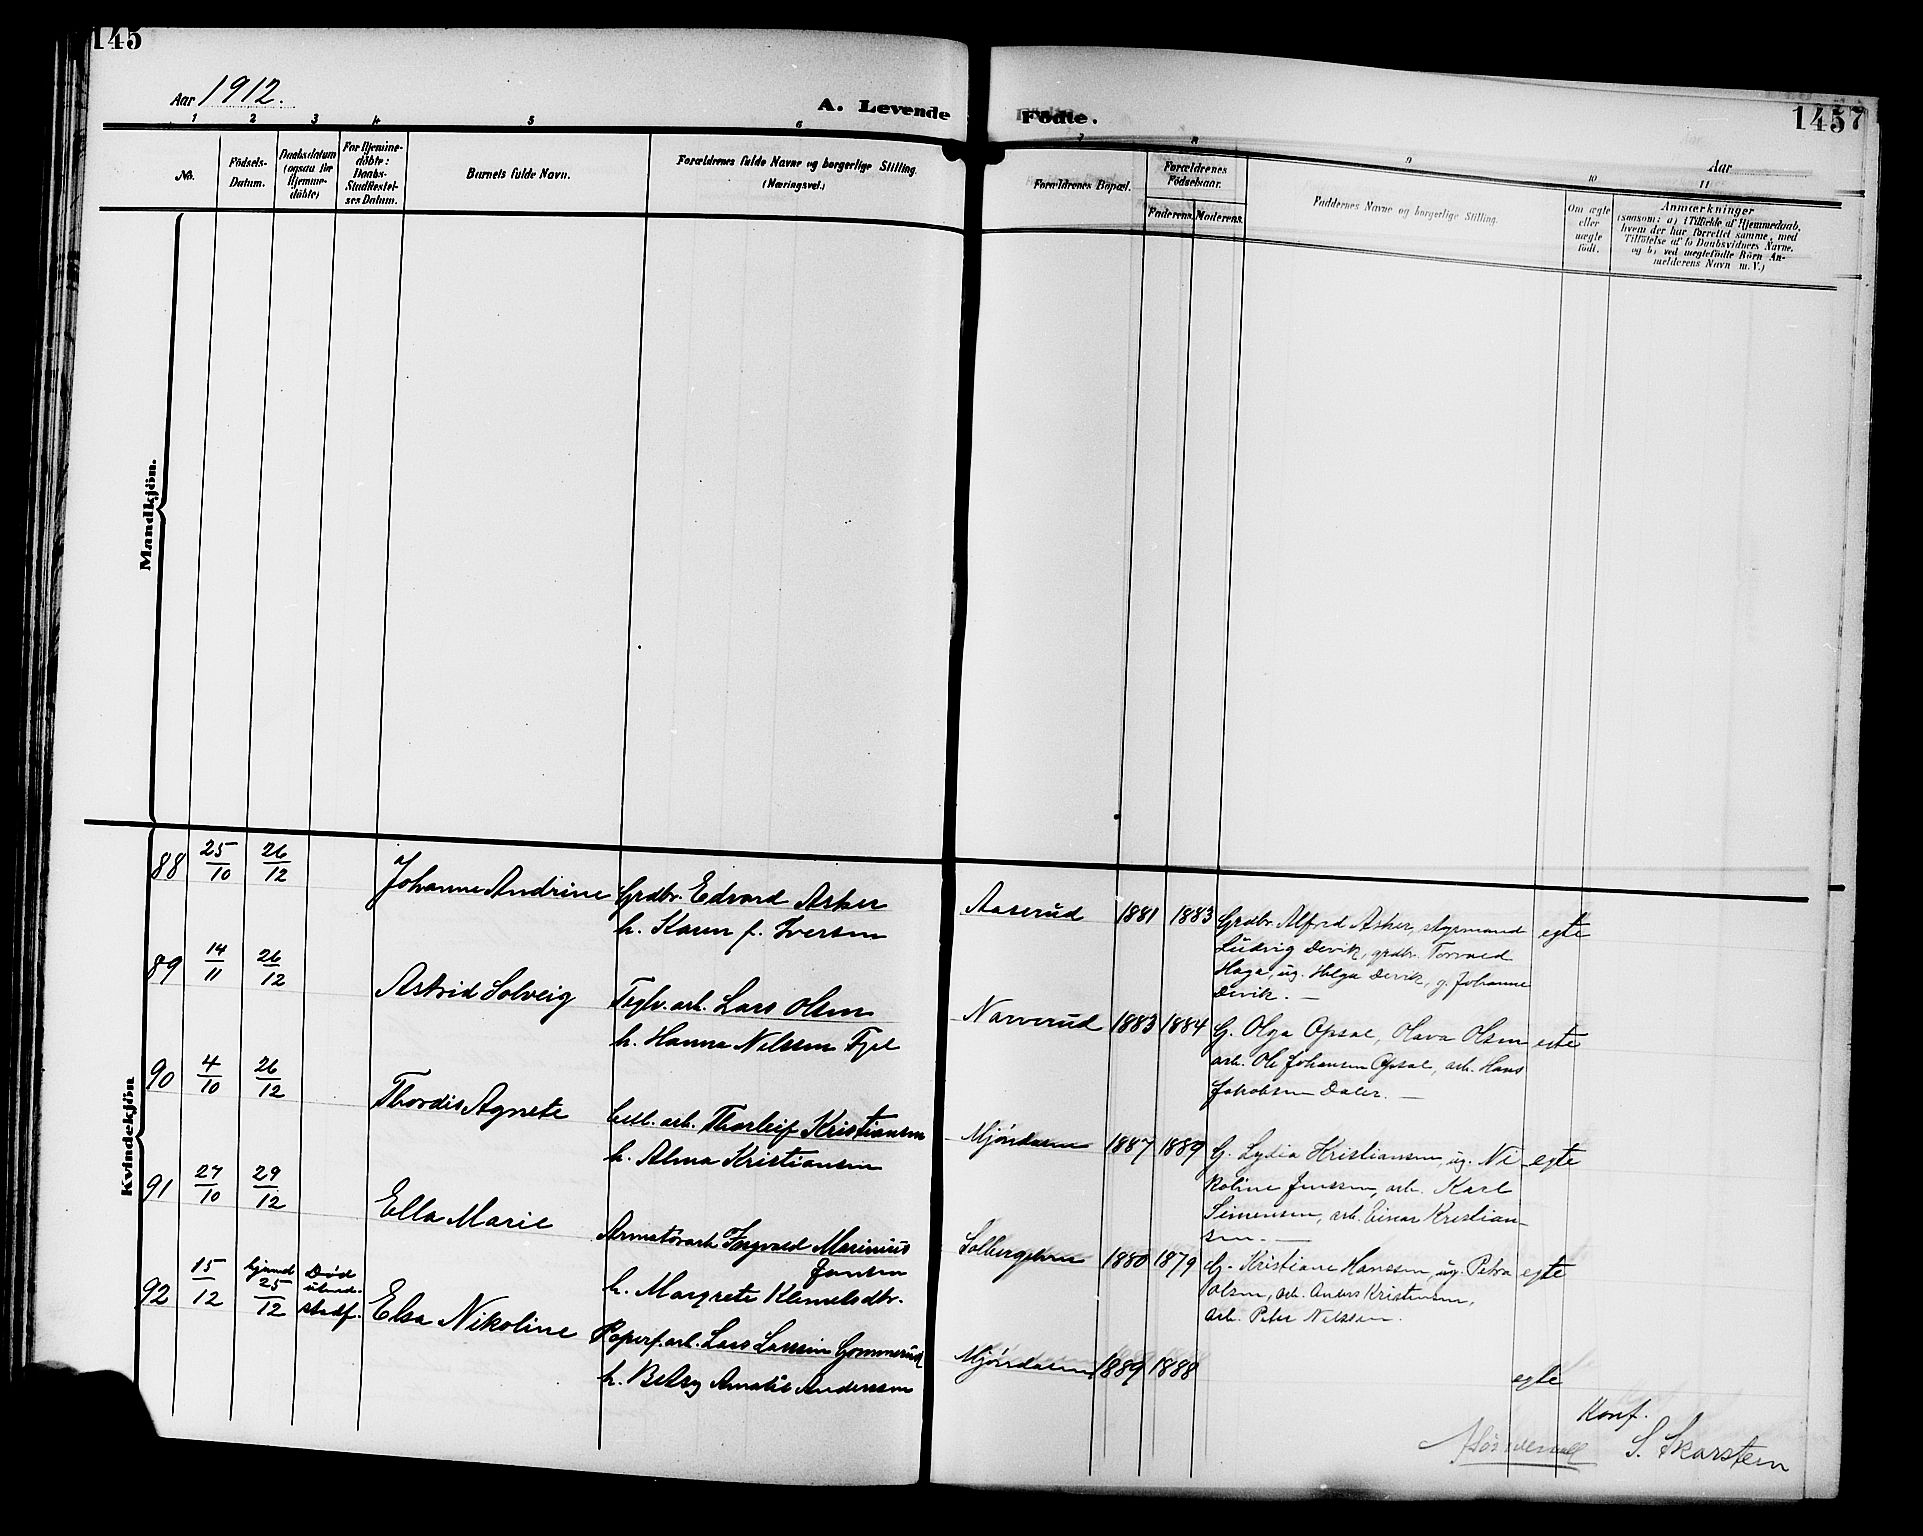 145
Aar 1912.
A. Levende
Fødte.
145
7
Aar
1 2 3 4 5 6
7 8 9 10 11
No.
Fødsels-
Datum.
Daabsdatum
(ogsaa for
Hjemme-
døbte)
For Hjemme-
døbte:
Daabs-
Stadfæstel-
ses Datum.
Barnets fulde Navn.
Forældrenes fulde Navne og borgerlige Stilling.
(Næringsvei.)
Forældrenes Bopæl.
Forældrenes
Fødselsaar.
Faderens. Moderens.
Faddernes Navne og borgerlige Stilling.
Om ægte
eller
uægte
født.
Anmærkninger
(saasom: a) i Tilfælde af Hjemmedaab,
hvem der har forrettet samme, med
Tilføielse af to Daabsvidners Navne,
og b) ved uægtefødte Børn An-
melderens Navn m. V.)
Mandkjön.
Kvindekjön
88 25/10 26/12 Johanne Andrine Grdbr. Edvard Asker
h. Karen f. Iversen
Aaserud 1881 1883 Grdbr. Alfred Asker, styrmand
Ludvig Devik, grdbr. Torvald
Haga, ug. Helga Devik, g. Johanne
Devik. —
egte
89 14/11 26/12 Astrid Solveig Teglv. arb. Lars Olsen
h. Hanna Nilssen Fjel
Narverud 1883 1884 G. Olga Opsal, Olava Olsen
arb. Ole Johansen Opsal, arb. Hans
Jakobsen Daler. —
egte
90 4/10 26/12 Thordis Agnete Cell. arb. Thorleif Kristiansen
h. Alma Kristiansen
Mjöndalen 1887 1889 G. Lydia Kristiansen, ug. Ni-
koline Jenssen, arb. Karl
Simensen, arb. Einar Kristian-
sen. —
egte
91 27/10 29/12 Ella Marie Armatörarb. Ingvald Marinius
Jansen
h. Margrete Klemetsdtr.
Solbergelven 1880 1879 G. Kristiane Hanssen, ug. Petra
Olsen, arb. Anders Kristensen,
arb. Peter Nilssen.
egte
92 15/12 Hjemd 25/12 Död
stadf. Elsa Nikoline Papirf. arb. Lars Larsen Gommerud
h. Betsy Amalie Anderssen
Mjöndalen 1889 1888
egte
Konf.
S. Skarstein